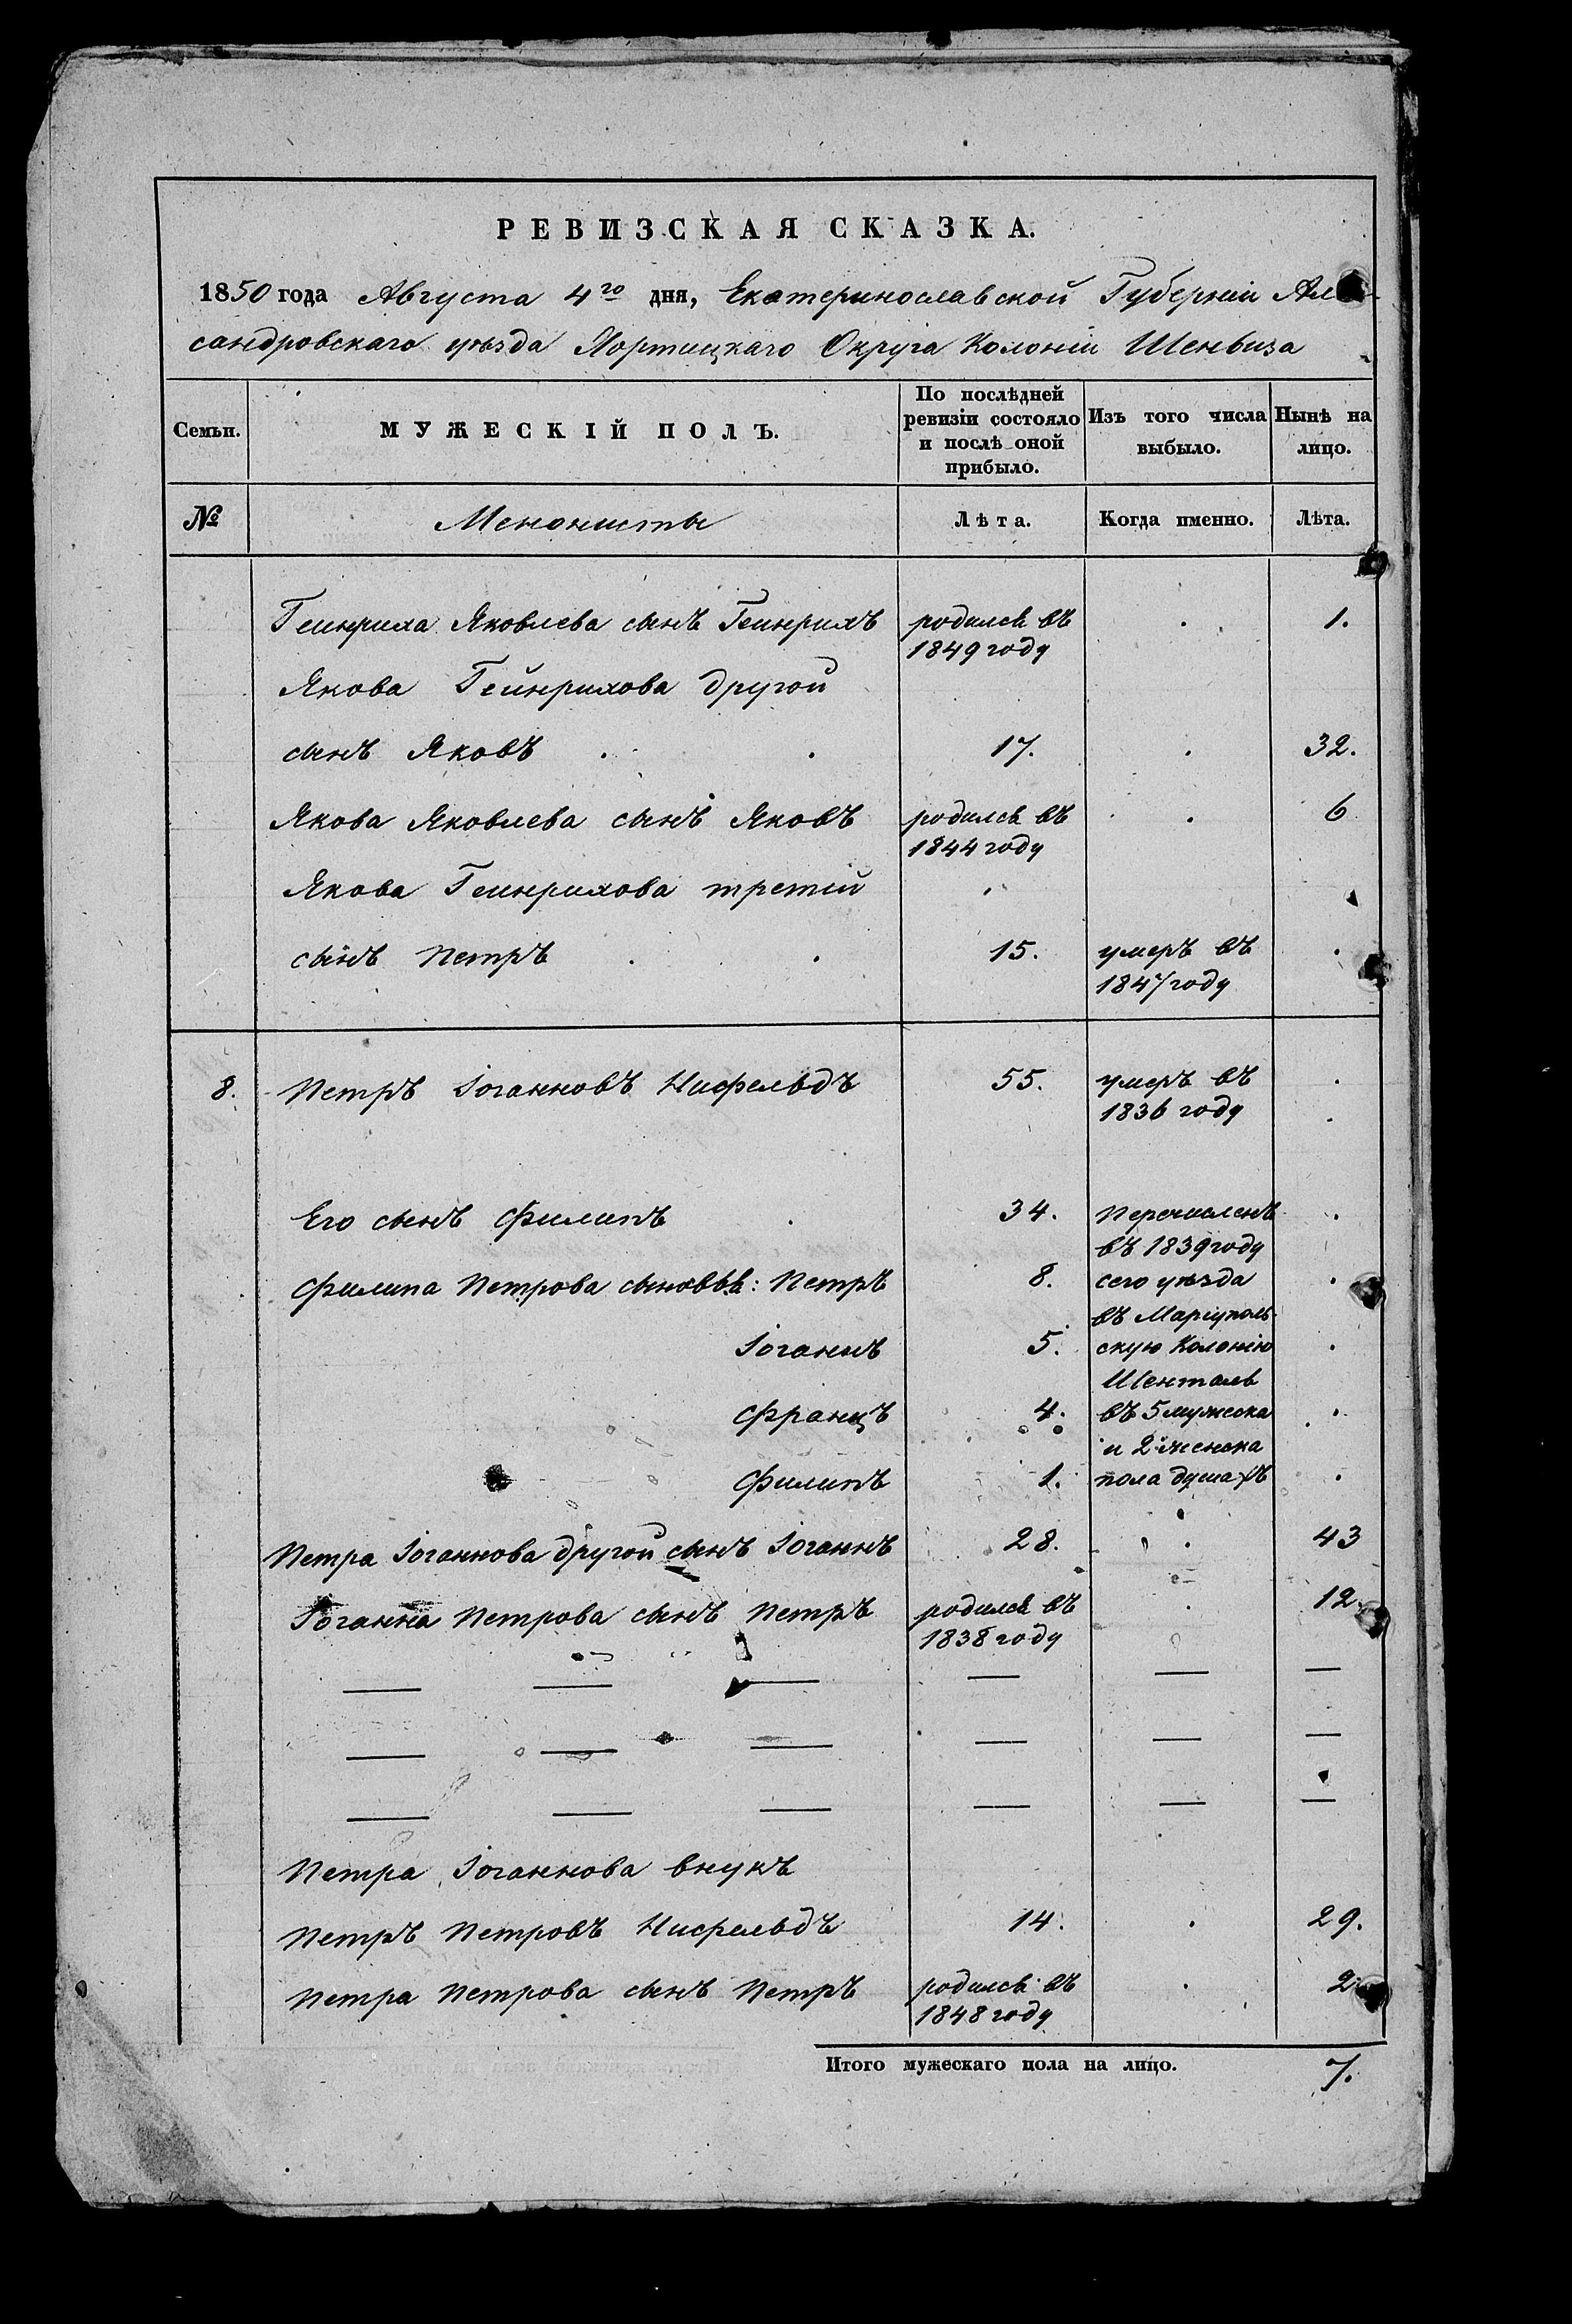 РЕВИЗСКАЯ СКАЗКА.
1850 года Августа 4го дня, Екатеринославской Губерніи Алек-
сандровскаго уѣзда Хортицкаго Округа Колоніи Шенвиза
Семьи. МУЖЕСКІЙ ПОЛЪ. По послѣдней ревизіи состояло и послѣ оной прибыло. Изъ того числа выбыло. Нынѣ на лицо.
№ Менонисты Лѣта. Когда именно. Лѣта.
Геинриха Яковлева сынъ Геинрихъ родился въ 1849 году 1.
Якова Гейнрихова другой
сынъ Яковъ 17. 32.
Якова Яковлева сынъ Яковъ родился въ 1844 году 6
Якова Геинрихова третій
сынъ Петръ 15. умеръ въ 1847 году
8. Петръ Іоганновъ Нисфельдъ 55. умеръ въ 1836 году
Его сынъ Филипъ 34. перечисленъ
въ 1839 году
Филипа Петрова сыновья: Петръ 8. сего уѣзда
въ Маріуполь-
Іоганнъ 5. скую Колонію
Шенталь
Францъ 4. въ 5 мужеска
и 2 женска
Филипъ 1. пола душахъ
Петра Іоганнова другой сынъ Іоганнъ 28. 43
Іоганна Петрова сынъ Петръ родился въ 1838 году 12.
Петра Іоганнова внукъ
Петръ Петровъ Нисфельдъ 14. 29.
Петра Петрова сынъ Петръ родился въ 1848 году 2
Итого мужескаго пола на лицо. 7.